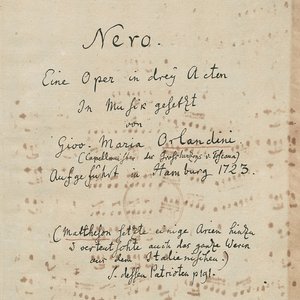 Nero.
Eine Oper in drey Acten
In Musik gesetzt
von
Giov. Maria Orlandini
(Capellmeister des Großherzogs v. Toscana)
Aufgeführt in Hamburg 1723.
(Mattheson setzte einige Arien hinzu
u verteutschte auch das ganze Werk
aus dem Italienischen.)
S. dessen Patrioten